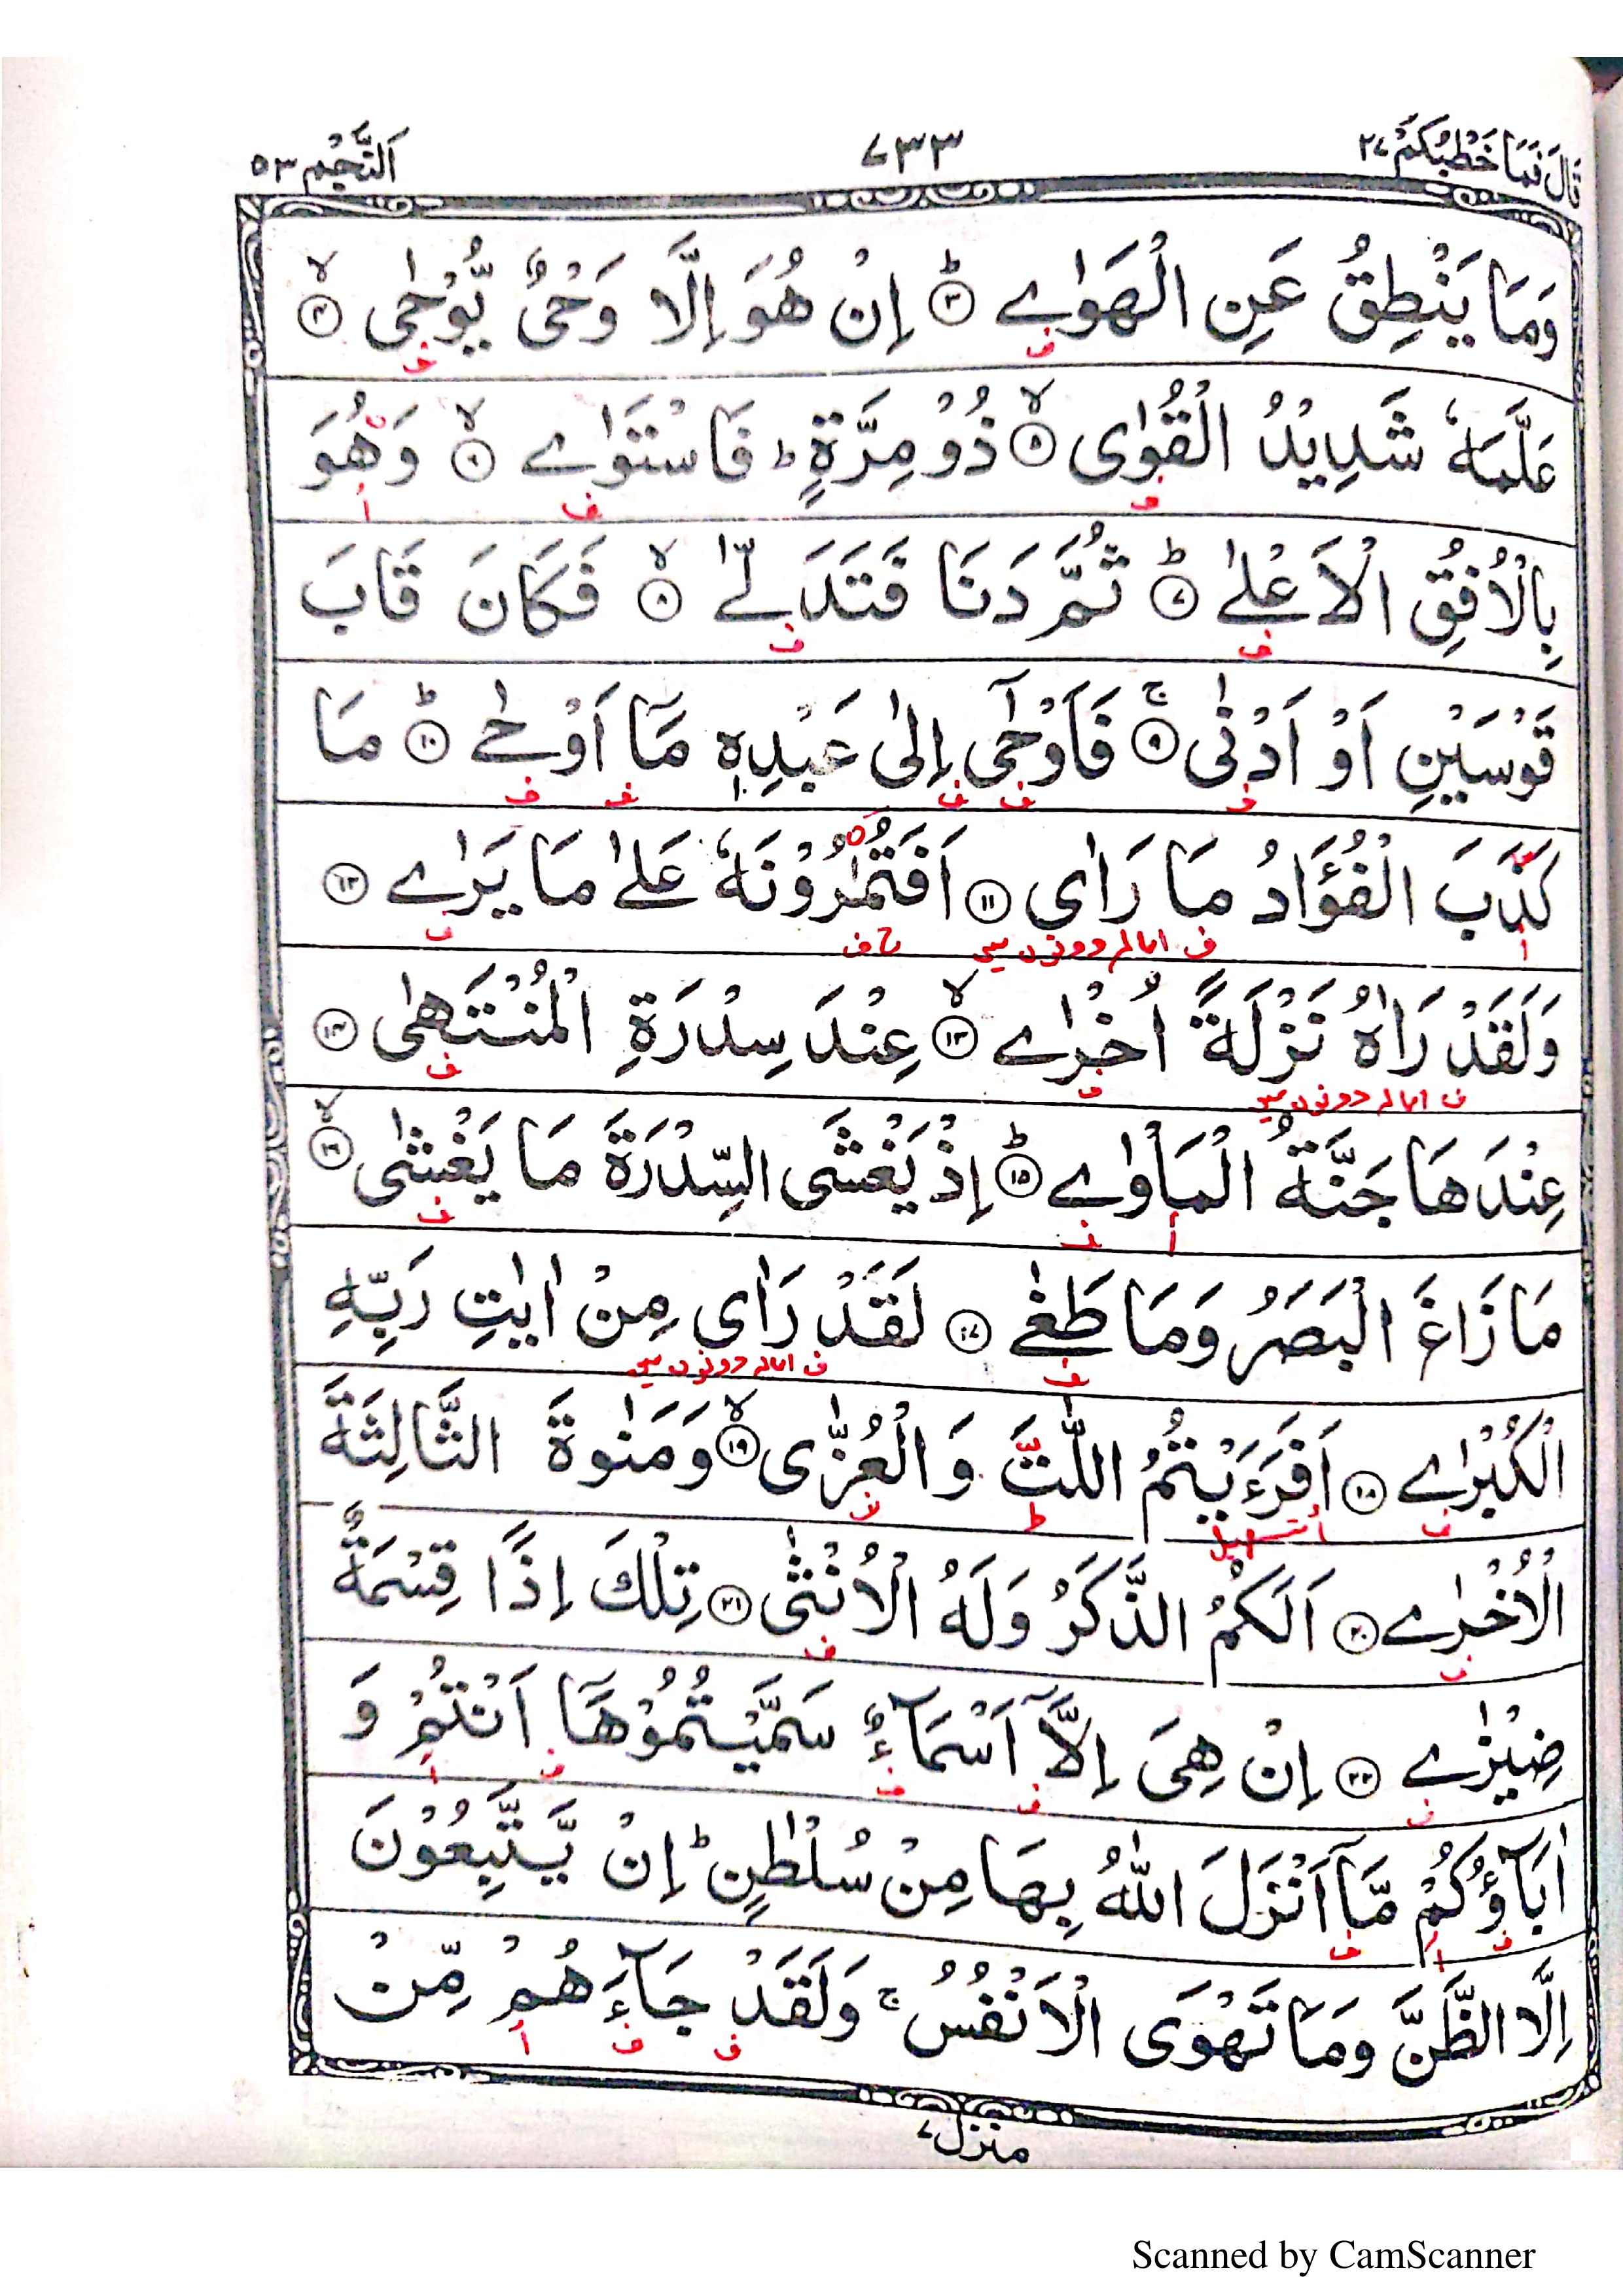 قَالَ فَمَا خَطْبُكُمْ ٢٧
٧٣٣
اَلنَّجْم ٥٣
وَمَا يَنْطِقُ عَنِ الْهَوٰے ۝٣ؕ اِنْ هُوَ اِلَّا وَحْیٌ یُّوْحٰی ۝٤ۙ
عَلَّمَهٗ شَدِیْدُ الْقُوٰی ۝٥ۙ ذُوْ مِرَّةٍ ؕ فَاسْتَوٰے ۝٦ۙ وَهُوَ
بِالْاُفُقِ الْاَعْلٰے ۝٧ؕ ثُمَّ دَنَا فَتَدَلّٰے ۝٨ۙ فَكَانَ قَابَ
قَوْسَیْنِ اَوْ اَدْنٰی ۝٩ۚ فَاَوْحٰۤی اِلٰی عَبْدِهٖ مَاۤ اَوْحٰے ۝١٠ؕ مَا
كَذَبَ الْفُؤَادُ مَا رَاٰی ۝١١ اَفَتُمٰرُوْنَهٗ عَلٰے مَا یَرٰے ۝١٢
ف امالہ دونوں میں
وَلَقَدْ رَاٰهُ نَزْلَةً اُخْرٰے ۝١٣ۙ عِنْدَ سِدْرَةِ الْمُنْتَهٰی ۝١٤
ف امالہ دونوں میں
عِنْدَهَا جَنَّةُ الْمَاْوٰے ۝١٥ؕ اِذْ یَغْشَی السِّدْرَةَ مَا یَغْشٰی ۝١٦ۙ
مَا زَاغَ الْبَصَرُ وَمَا طَغٰے ۝١٧ لَقَدْ رَاٰی مِنْ اٰیٰتِ رَبِّهِ
ف امالہ دونوں میں
الْكُبْرٰے ۝١٨ اَفَرَءَیْتُمُ اللّٰتَ وَ الْعُزّٰی ۝١٩ۙ وَمَنٰوةَ الثَّالِثَةَ
تسہیل
الْاُخْرٰے ۝٢٠ اَلَكُمُ الذَّكَرُ وَلَهُ الْاُنْثٰی ۝٢١ تِلْكَ اِذًا قِسْمَةٌ
ضِیْزٰے ۝٢٢ اِنْ هِیَ اِلَّاۤ اَسْمَآءٌ سَمَّیْتُمُوْهَاۤ اَنْتُمْ وَ
اٰبَآؤُكُمْ مَّاۤ اَنْزَلَ اللّٰهُ بِهَا مِنْ سُلْطٰنٍ ؕ اِنْ یَّتَّبِعُوْنَ
اِلَّا الظَّنَّ وَمَا تَهْوَی الْاَنْفُسُ ۚ وَلَقَدْ جَآءَهُمْ مِّنْ
منزل ٧
Scanned by CamScanner